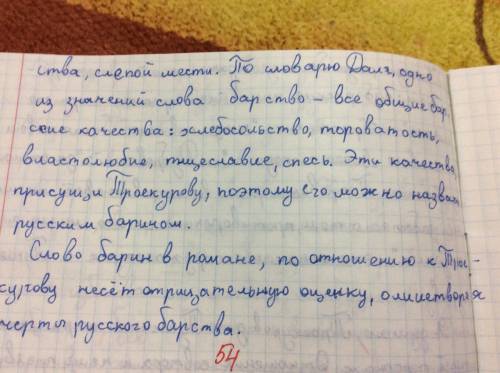 ства, слепой мести. По словарю Даля, одно
из значений слова барство – все общие бар
ские качества: хлебосольство, тороватость,
властолюбие, тщеславие, спесь. Эти качества
присущи Троекурову, поэтому его можно назвать
русским барином.
Слово барин в романе, по отношению к Трое-
курову несёт отрицательную оценку, олицетворяя
черты русского барства.
54